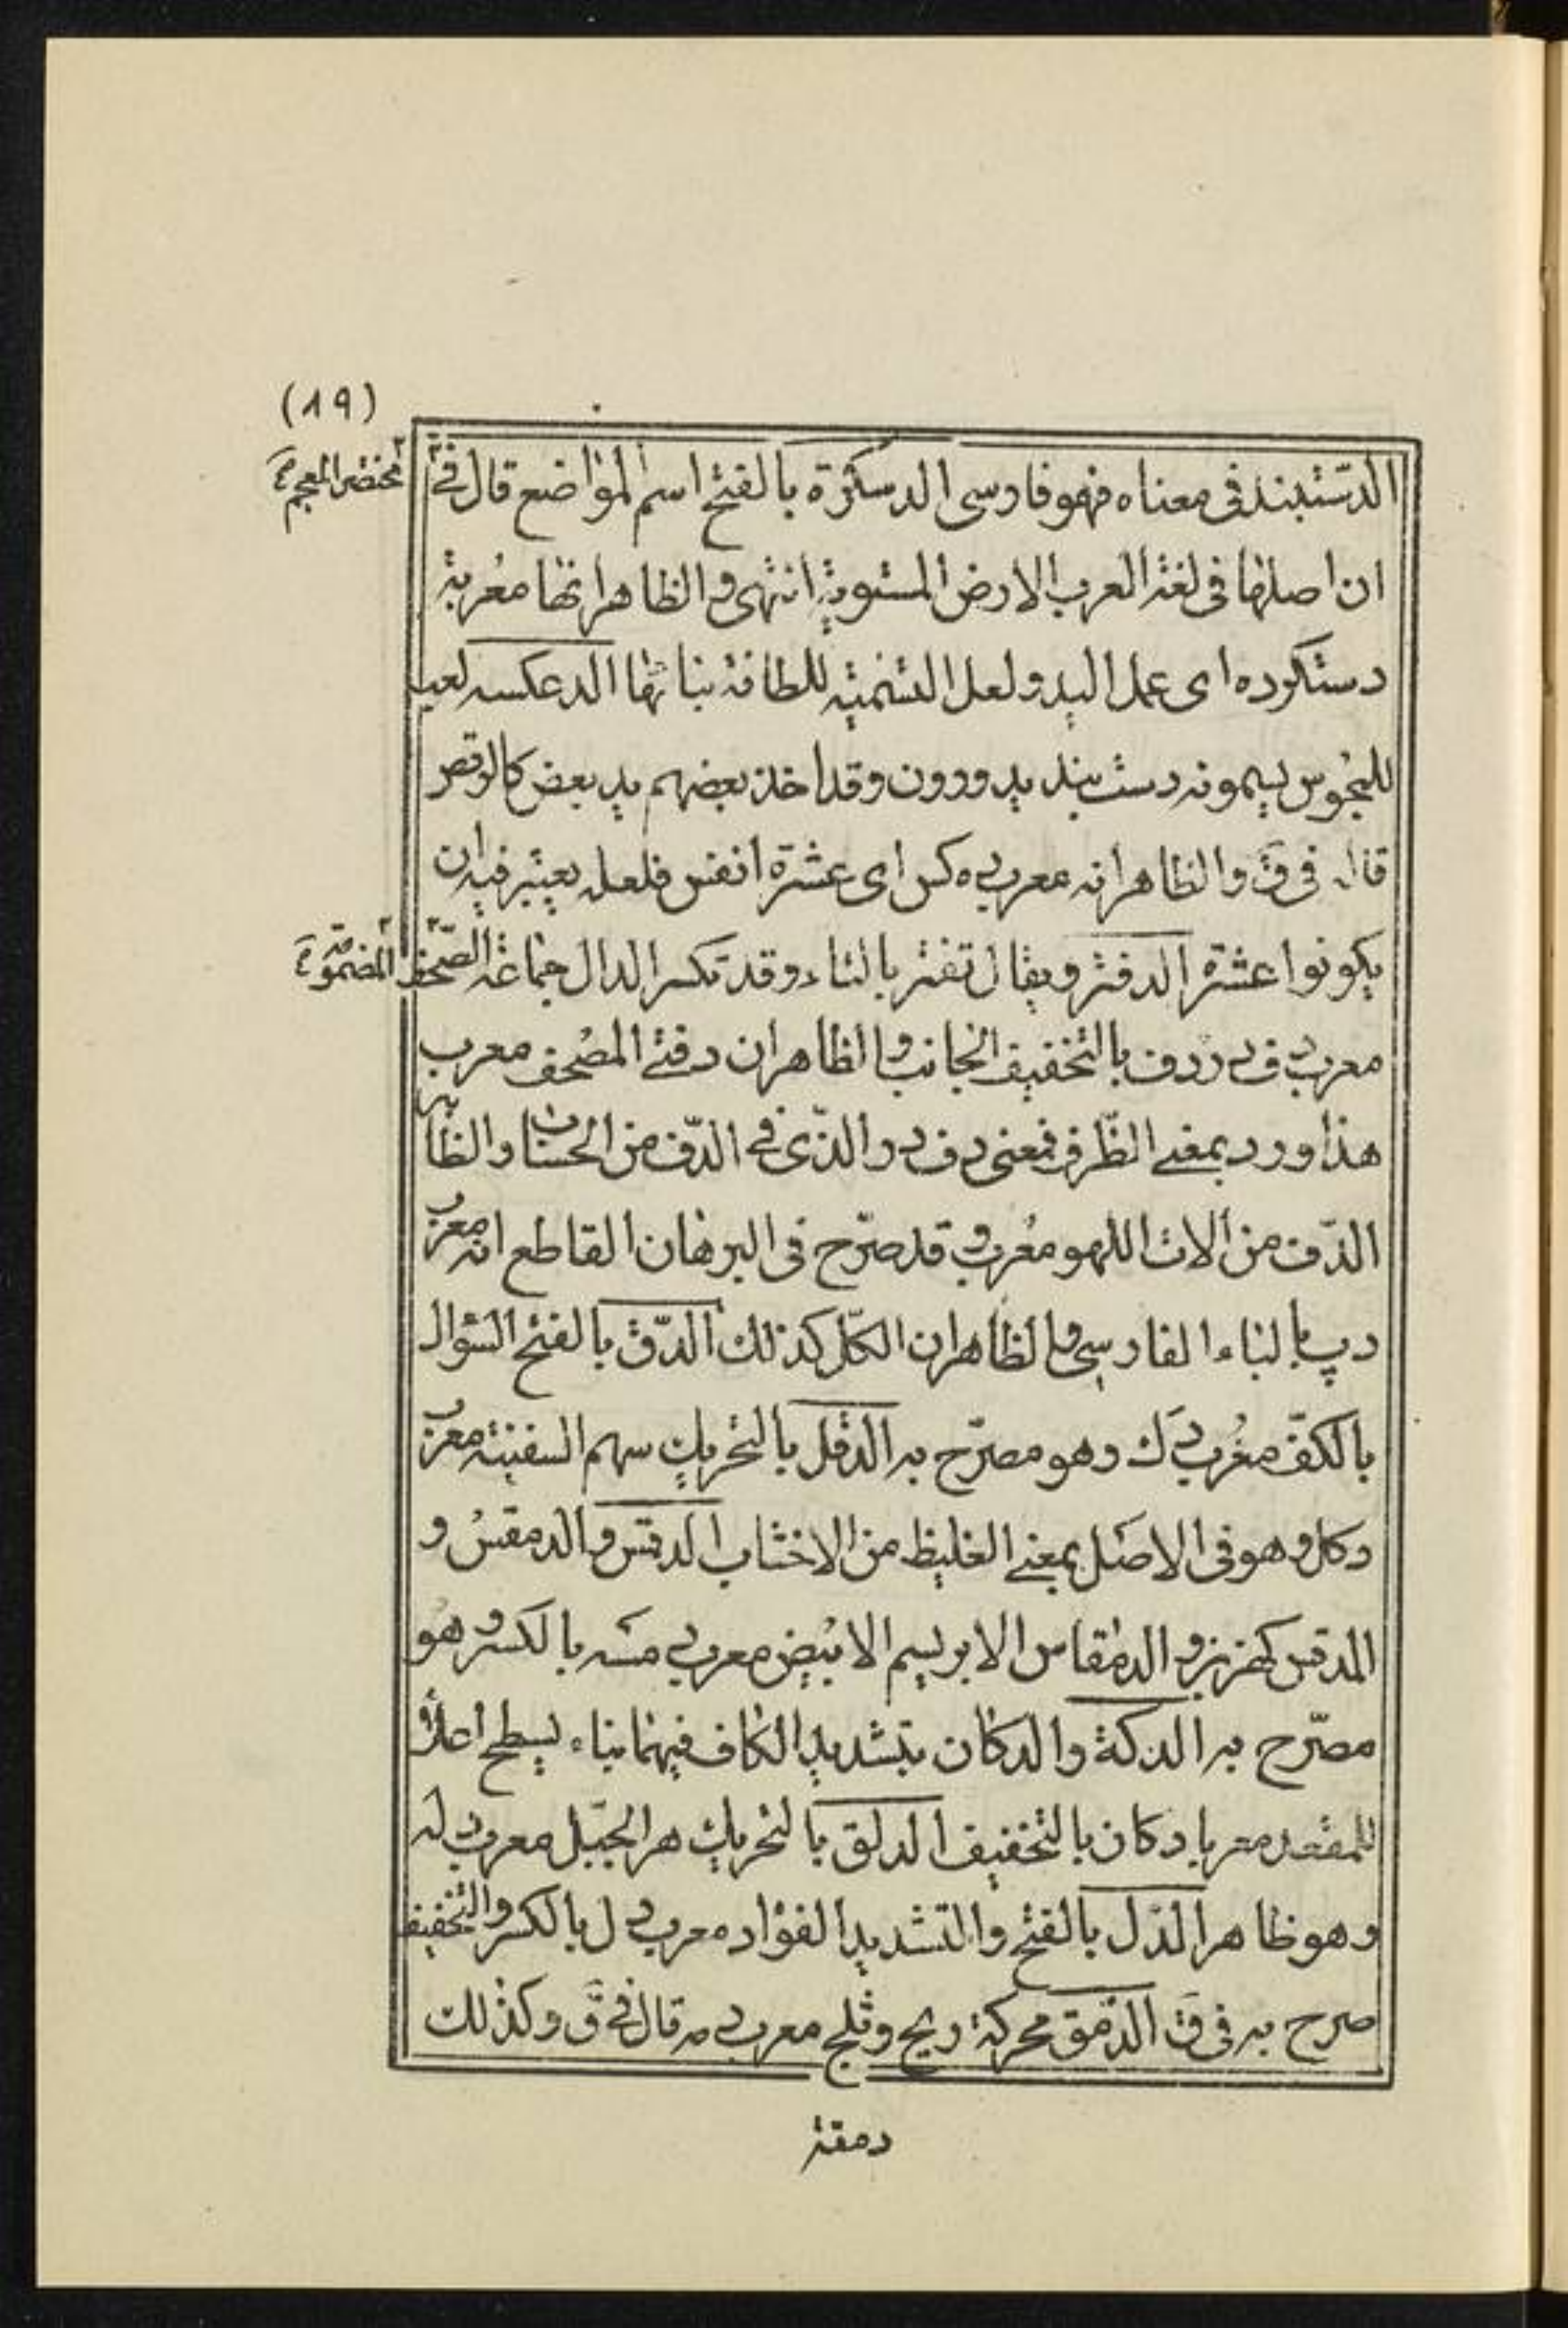 (١٩)
الدستبند فى معناه فهو فارسى الدسكرة بالفتح اسم لمواضع قال فى مختصر المعجم
ان اصلها فى لغة العرب الارض المستوية انتهى والظاهر انها معربة
دستكرده اى عمل اليد ولعل التسمية للطافة بنائها الدعكسه لعب
للمجوس يسمونه دست بند يدورون وقد اخذ بعضهم يد بعض كالرقص
قال فى ق والظاهر انه معرب ده كس اى عشرة انفس فلعله يعتبر فيه ان
يكونوا عشرة الدفتر ويقال تفتر بالتاء وقد تكسر الدال جماعة الصحف المضمومة
معرب دف در دف بالتخفيف الجانب والظاهر ان دفتى المصحف معرب
هذا ودر بمعنى الظرف فمعنى دف در الذى فى الدف من الحساب والظاهر
الدف من آلات اللهو معرب وقد صرح فى البرهان القاطع انه معرب
دپ بالباء الفارسى والظاهر ان الكل كذلك الدق بالفتح السؤال
بالكف معرب دك وهو مصرح به الدقل بالتحريك سهم السفينة معرب
دكل وهو فى الاصل بمعنى الغليظ من الاخشاب الدقس والدمقس و
المدقس كهزبر والدمقاس الابريسم الابيض معرب دمسه بالكسر وهو
مصرح به الدكة والدكان بتشديد الكاف فيهما بناء يسطح اعلاه
للمقعد معربا دكان بالتخفيف الدلق بالتحريك هر الجبل معرب دله
وهو ظاهر الدل بالفتح والتشديد الفؤاد معرب دل بالكسر والتخفيف
صرح به فى ق الدمق محركة ريح وثلج معرب دمه قال فى ق وكذلك
دمقة